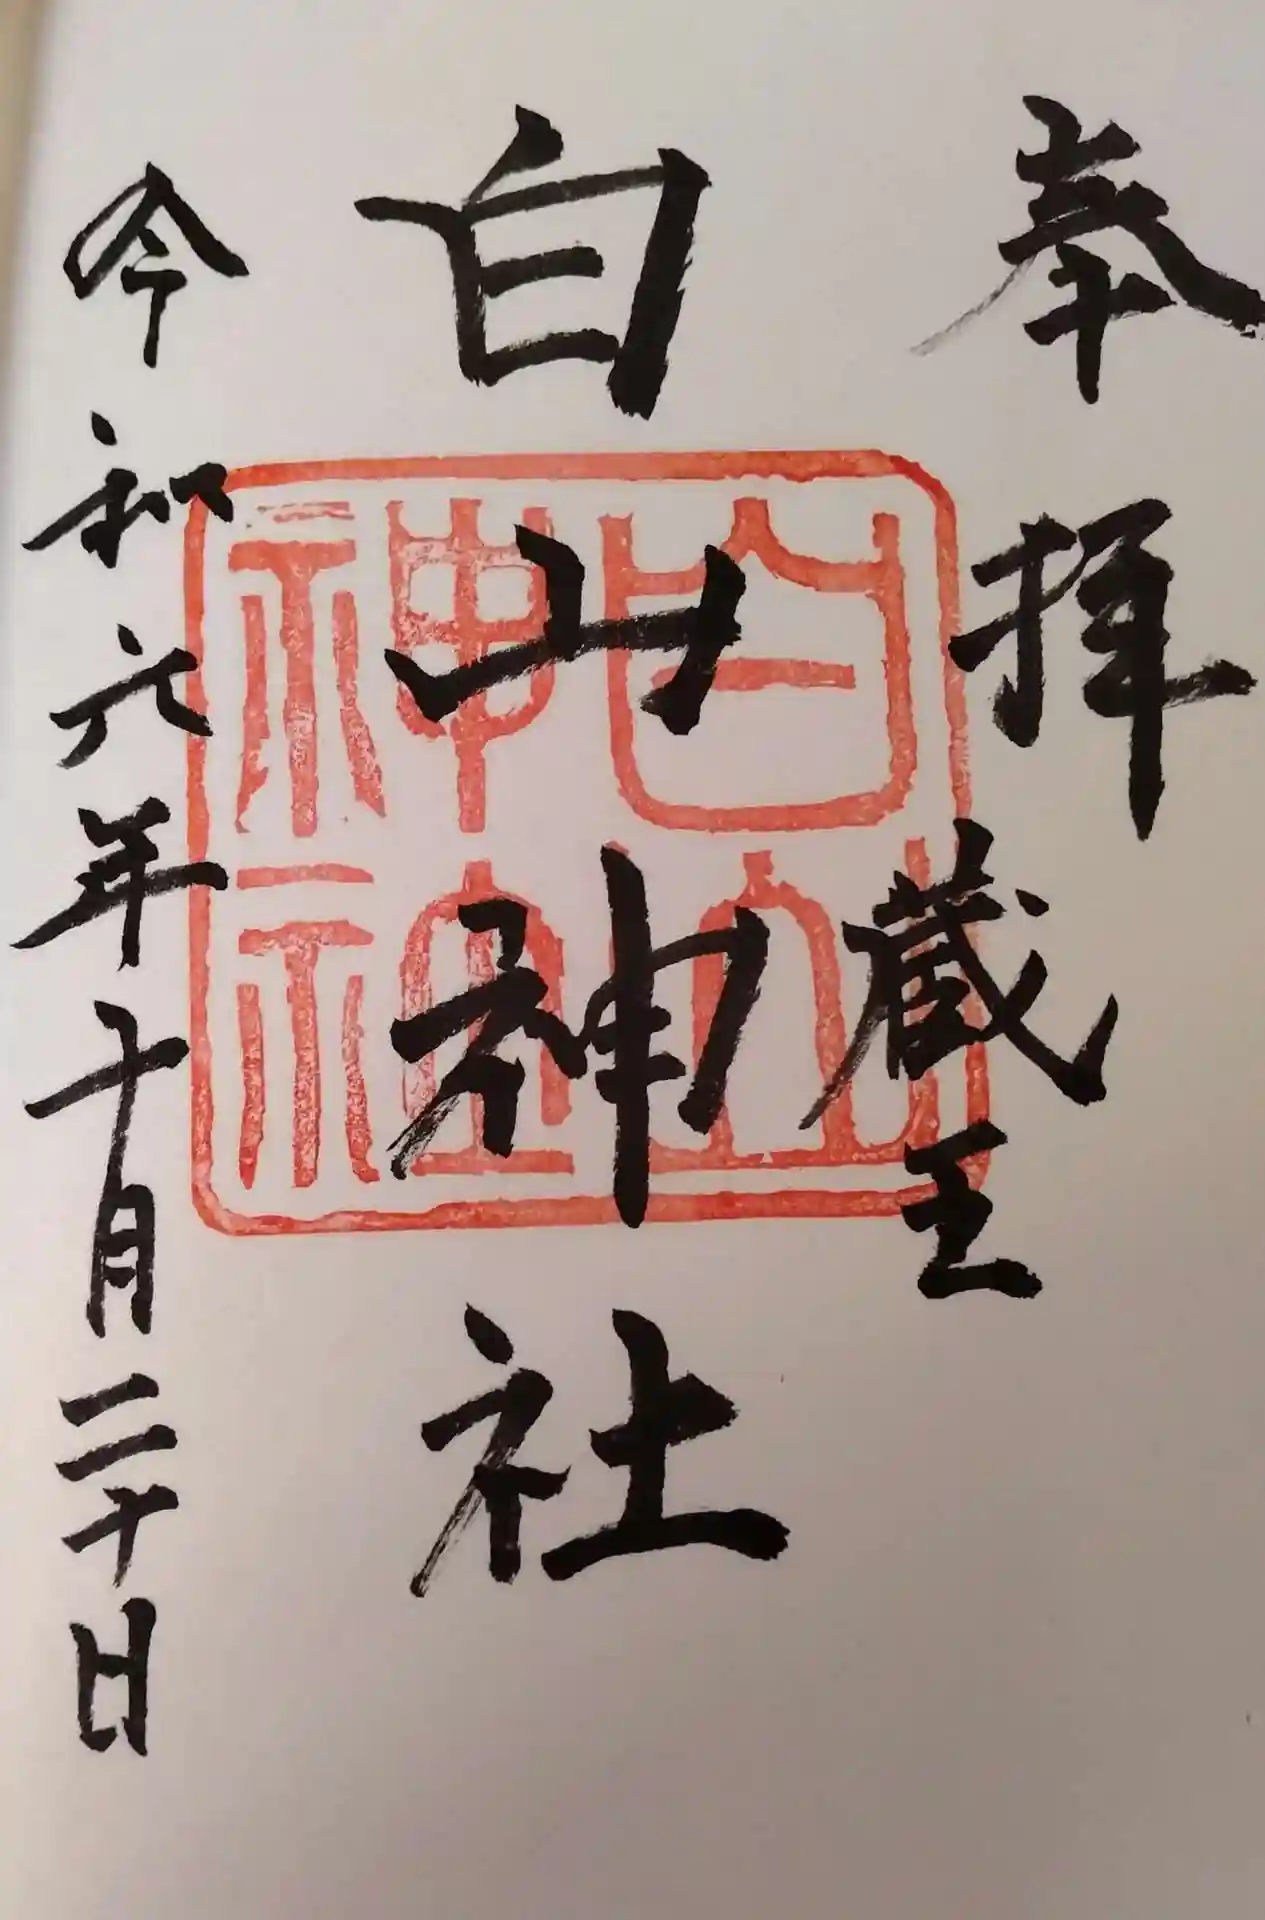 奉拝
蔵王
白山神社
白山
神社
令和六年十月二十日